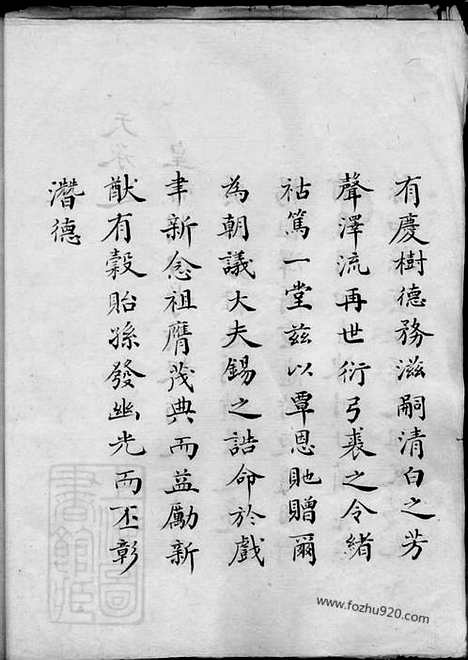 有慶樹德務滋嗣清白之芳
聲澤流再世衍弓裘之令緒
祜篤一堂兹以覃恩貤贈爾
為朝議大夫錫之誥命於戲
聿新念祖膺茂典而益勵新
猷有穀貽孫發幽光而丕彰
潛德
www.fozhu920.com